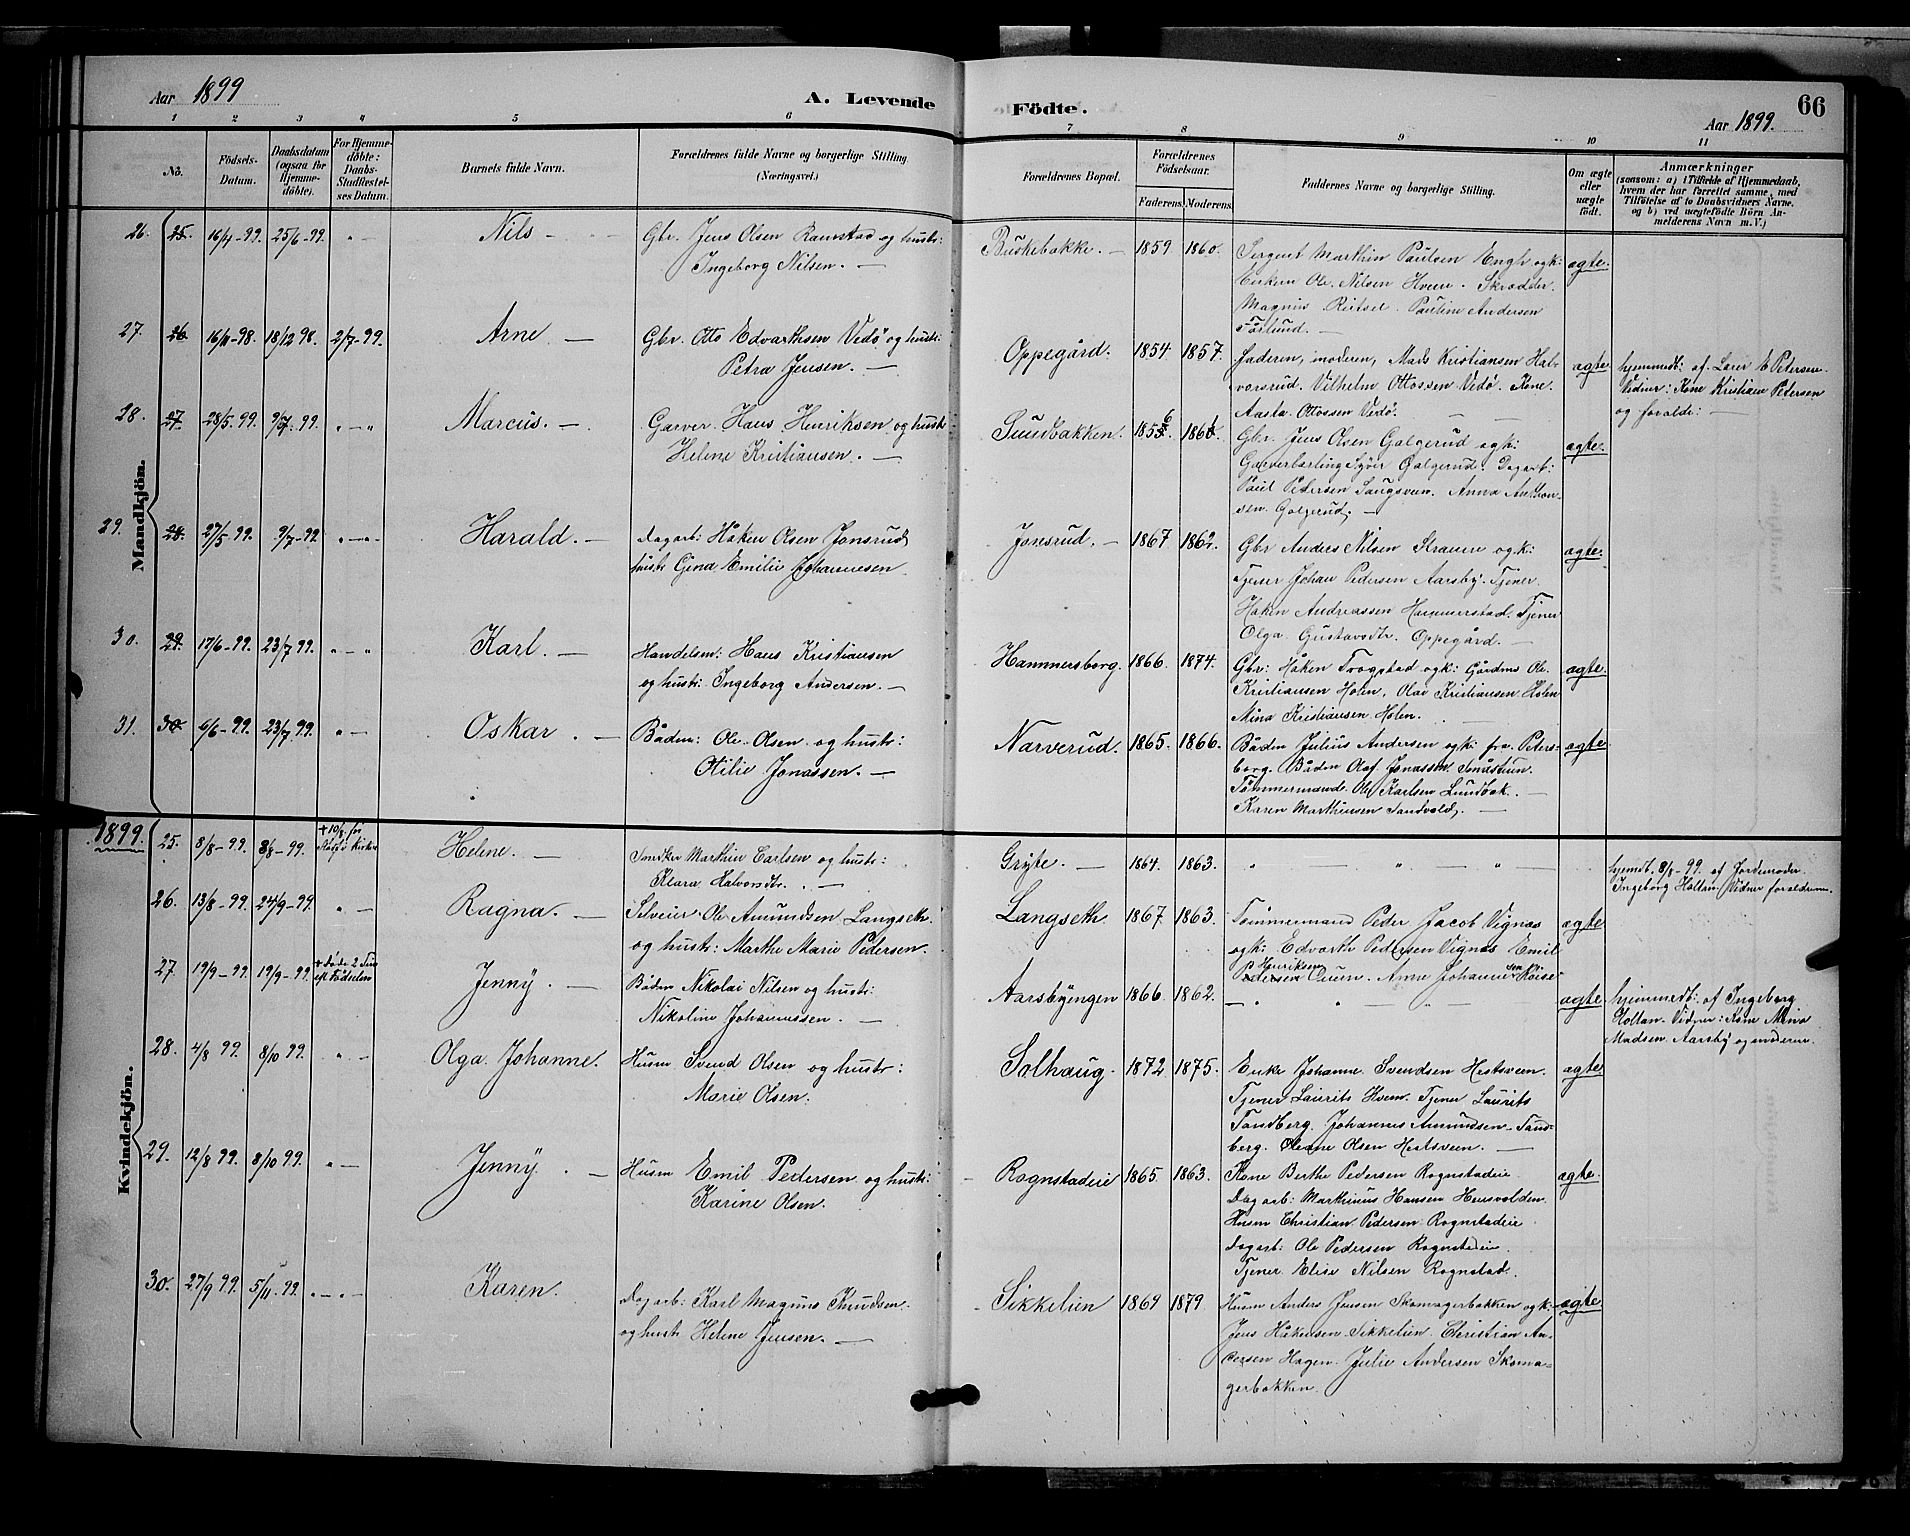 Aar 1899
A. Levende
Födte.
Aar 1899.
66
1 2 3 4 5 6 7 8 9 10 11
No.
Födsels-Datum.
Daabsdatum (ogsaa for Hjemmedöbte).
For Hjemmedöbte: Daabs-Stadfæstelses Datum.
Barnets fulde Navn.
Forældrenes fulde Navne og borgerlige Stilling.
(Næringsvei.)
Forældrenes Bopæl.
Forældrenes Födselsaar.
Faderens. Moderens.
Faddernes Navne og borgerlige Stilling.
Om ægte eller uægte födt.
Anmærkninger
(saasom: a) i Tilfælde af Hjemmedaab, hvem der har forrettet samme, med Tilföielse af to Daabsvidners Navne, og b) ved uægtefödte Börn Anmelderens Navn m. V.)
Mandkjön.
26. 25. 16/4-99. 25/6-99. " — Nils — Gbr. Jens Olsen Ramstad og hustr:
Ingeborg Nilsen. —
Buskebakke. — 1859 1860. Sergent Marthin Paulsen Engh og k:
Enkem Ole Nilsen Hvem. Skrædder
Magnus Reitsel. Pauline Andersen
ægte.
27. 26. 16/11-98. 18/12 98. 2/7-99. Arne — Gbr. Otto Edvarthsen Vedö og hustr:
Petra Jensen. —
Oppegård. 1854. 1857. Faderen, moderen, Mads Kristiansen Hal-
vorsrud. Vilhelm Ottossen Vedö. Kone
Aasta Ottossen Vedö.
ægte hjemmedt: af Lærer E Petersen.
Vidner: Kone Kristiane Petersen
og foralde: —
28. 27. 28/5. 99. 9/7. 99. " — " Marcus. — Garver. Hans Henriksen og hustr
Helene Kristiansen. —
Sundbakken. 1856. 1861. Gbr. Jens Olsen Galgerud og k:
Garverlærling Syver Galgerud. Dagarb:
Paul Pedersen Saugsveen. Anna Anthon-
sen Galgerud. —
ægte.
29. 28. 27/5-99. 9/7-99. " — " — Harald. — Dagarb: Håken Olsen Jonsrud
hustr Gina Emilie Johannesen
Jonsrud. — 1867 1862. Gbr Anders Nilsen Straum og k:
Tjener Johan Pedersen Aarsby. Tjener
Haken Andreassen Hammerstad. Tjener
Olga Gustavsdtr. Oppegård. —
ægte.
30. 29. 17/6-99. 23/7 99. " — " Karl. — Handelsm: Hans Kristiansen
og hustr: Ingeborg Andersen. —
Hammersborg. 1866. 1874. Gbr: Håken Trogstad og k: Gårdms Ole
Kristiansen Holen, Olav Kristiansen Holen
Mina Kristiansen Holen.
ægte.
31. 30. 6/6-99. 23/7. 99. " — Oskar. — Bådm: Ole Olsen og hustr:
Otilie Jonassen. —
Narverud. 1865. 1866. Bådm Julius Andersen og k: fra Peters-
borg. Bådm Olaf Jonassen
Tömmermand. Ole Karlsen Lundbak. —
Karen Marthinsen Sandvold. —
ægte
1899.
Kvindekjön.
25. 8/8-99. 8/8-99. + 10/8. för Helene. — Smdker Marthin Carlsen og hustr:
Klara Halvorsdtr. —
Gryte. — 1864. 1863. " — " — "
hjemdt. 8/8-99. af Jordemoder
Ingeborg Hollan. Vidner foraldrene.
26. 13/8-99. 24/9-99. " — Ragna. — Selveier Ole Amundsen Langseth
og hustr: Marthe Marie Pedersen.
Langseth 1867. 1863. Tömmermand Peder Jacob Vignæs
og k: Edvarth Pedersen Vignæs Emil
Henriksen
ægte
27 19/9-99. 19/9-99. + döde 2 Tim eft Födselen Jenny. — Bådm Nikolai Nilsen og hustr:
Nikoline Johannessen. —
Aarsbyengen 1866. 1862. — " — " —
ægte hjemmedt: af Ingeborg
Hollan. Vidner: Kone Mina
Madsen. Aarsby og moderen.
28. 4/8 99. 8/10 99. " — Olga Johanne. Husm Svend Olsen og hustr:
Marie Olsen.
Solhaug. 1872 1875. Enke Johanne Svendsen Hestsveen.
Tjener Laurits Hvem. Tjener Laurits
Sandberg. Johannes Amundsen Sand-
berg. Oleane Olsen Hestsveen. —
ægte
29. 12/8 99. 8/10 99. " — Jenny. — Husm Emil Pedersen og hustr:
Karine Olsen.
Rognstadeie 1865. 1863. Kone Berthe Pedersen Rognstadeie
Dagarb: Marthinus Hansen Hensvolden.
Husm Christian Pedersen Rognstadeie
Dagarb: Ole Pedersen Rognstadeie.
Tjener Elise Nilsen Rognstad.
ægte.
30. 27/9 99. 5/11-99. " — " — Karen. Dagarb: Karl Magnus Knudsen
og hustr Helene Jensen. —
Sikkelien 1869 1879. Husm Anders Jensen Skomagerbakken og k:
Jens Håkensen Sikkelien. Christian An-
dersen Hagen. Julie Andersen Skoma-
gerbakken.
ægte.